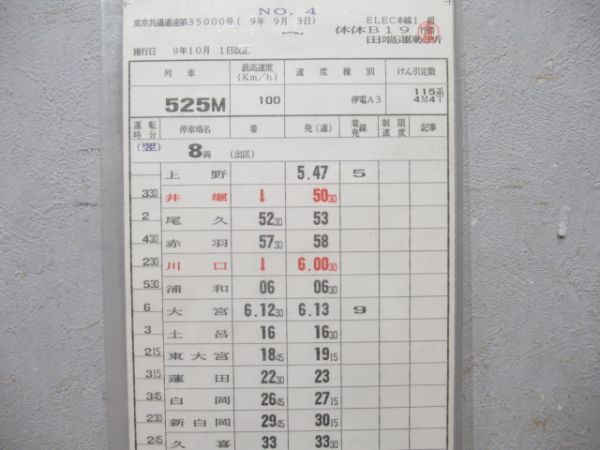 NO. 4
東京共通通達第35000号( 9年 9月 3日) ELEC本線1 組
休休B19 行路
田端運転所
施行日 9年10月 1日改正
列車 最高速度(Km/h) 速度種別 けん引定数
525M 100 停電A3 115系 4M4T
運転時分 停車場名 着 発(通) 着発線 制限速度 記事
(翌) 8両 (出区)
上野 5.47 5
330 井堀 ↓ 50 30
2 尾久 52 30 53
430 赤羽 57 30 58
230 川口 ↓ 6.00 30
530 浦和 06 06 30
6 大宮 6.12 30 6.13 9
3 土呂 16 16 30
215 東大宮 18 45 19 15
315 蓮田 22 30 23
345 白岡 26 45 27 15
230 新白岡 29 45 30 15
245 久喜 33 33 30